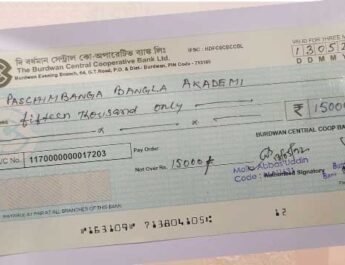 দি বর্ধমান সেন্ট্রাল কো-অপারেটিভ ব্যাঙ্ক লিঃ
The Burdwan Central Cooperative Bank Ltd.
Burdwan Evening Branch, 54, G.T. Road, P.O. & Dist.- Burdwan, PIN Code - 713101
IFSC : HDFC0CBCCGL
VALID FOR THREE MON
13052
D D M M Y
PASCHIMBANGA BANGLA AKADEMI
fifteen Thousand only
₹ 15000
BURDWAN CENTRAL COOP BAN
A/C No. 1170000000017203
Pay Order
Not Over Rs. 15000
Code :
Authorised Signatory
PAYABLE AT PAR AT ALL BRANCHES OF THIS BANK
12